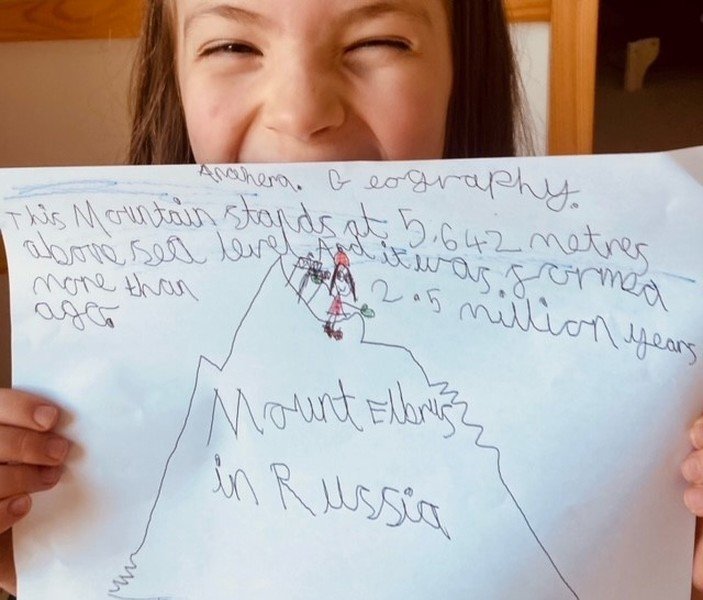 Anahera. Geography.
This Mountain stands at 5.642 metres
above sea level And it was formed
more than 2.5 million years
ago.
Mount Elbrus
in Russia